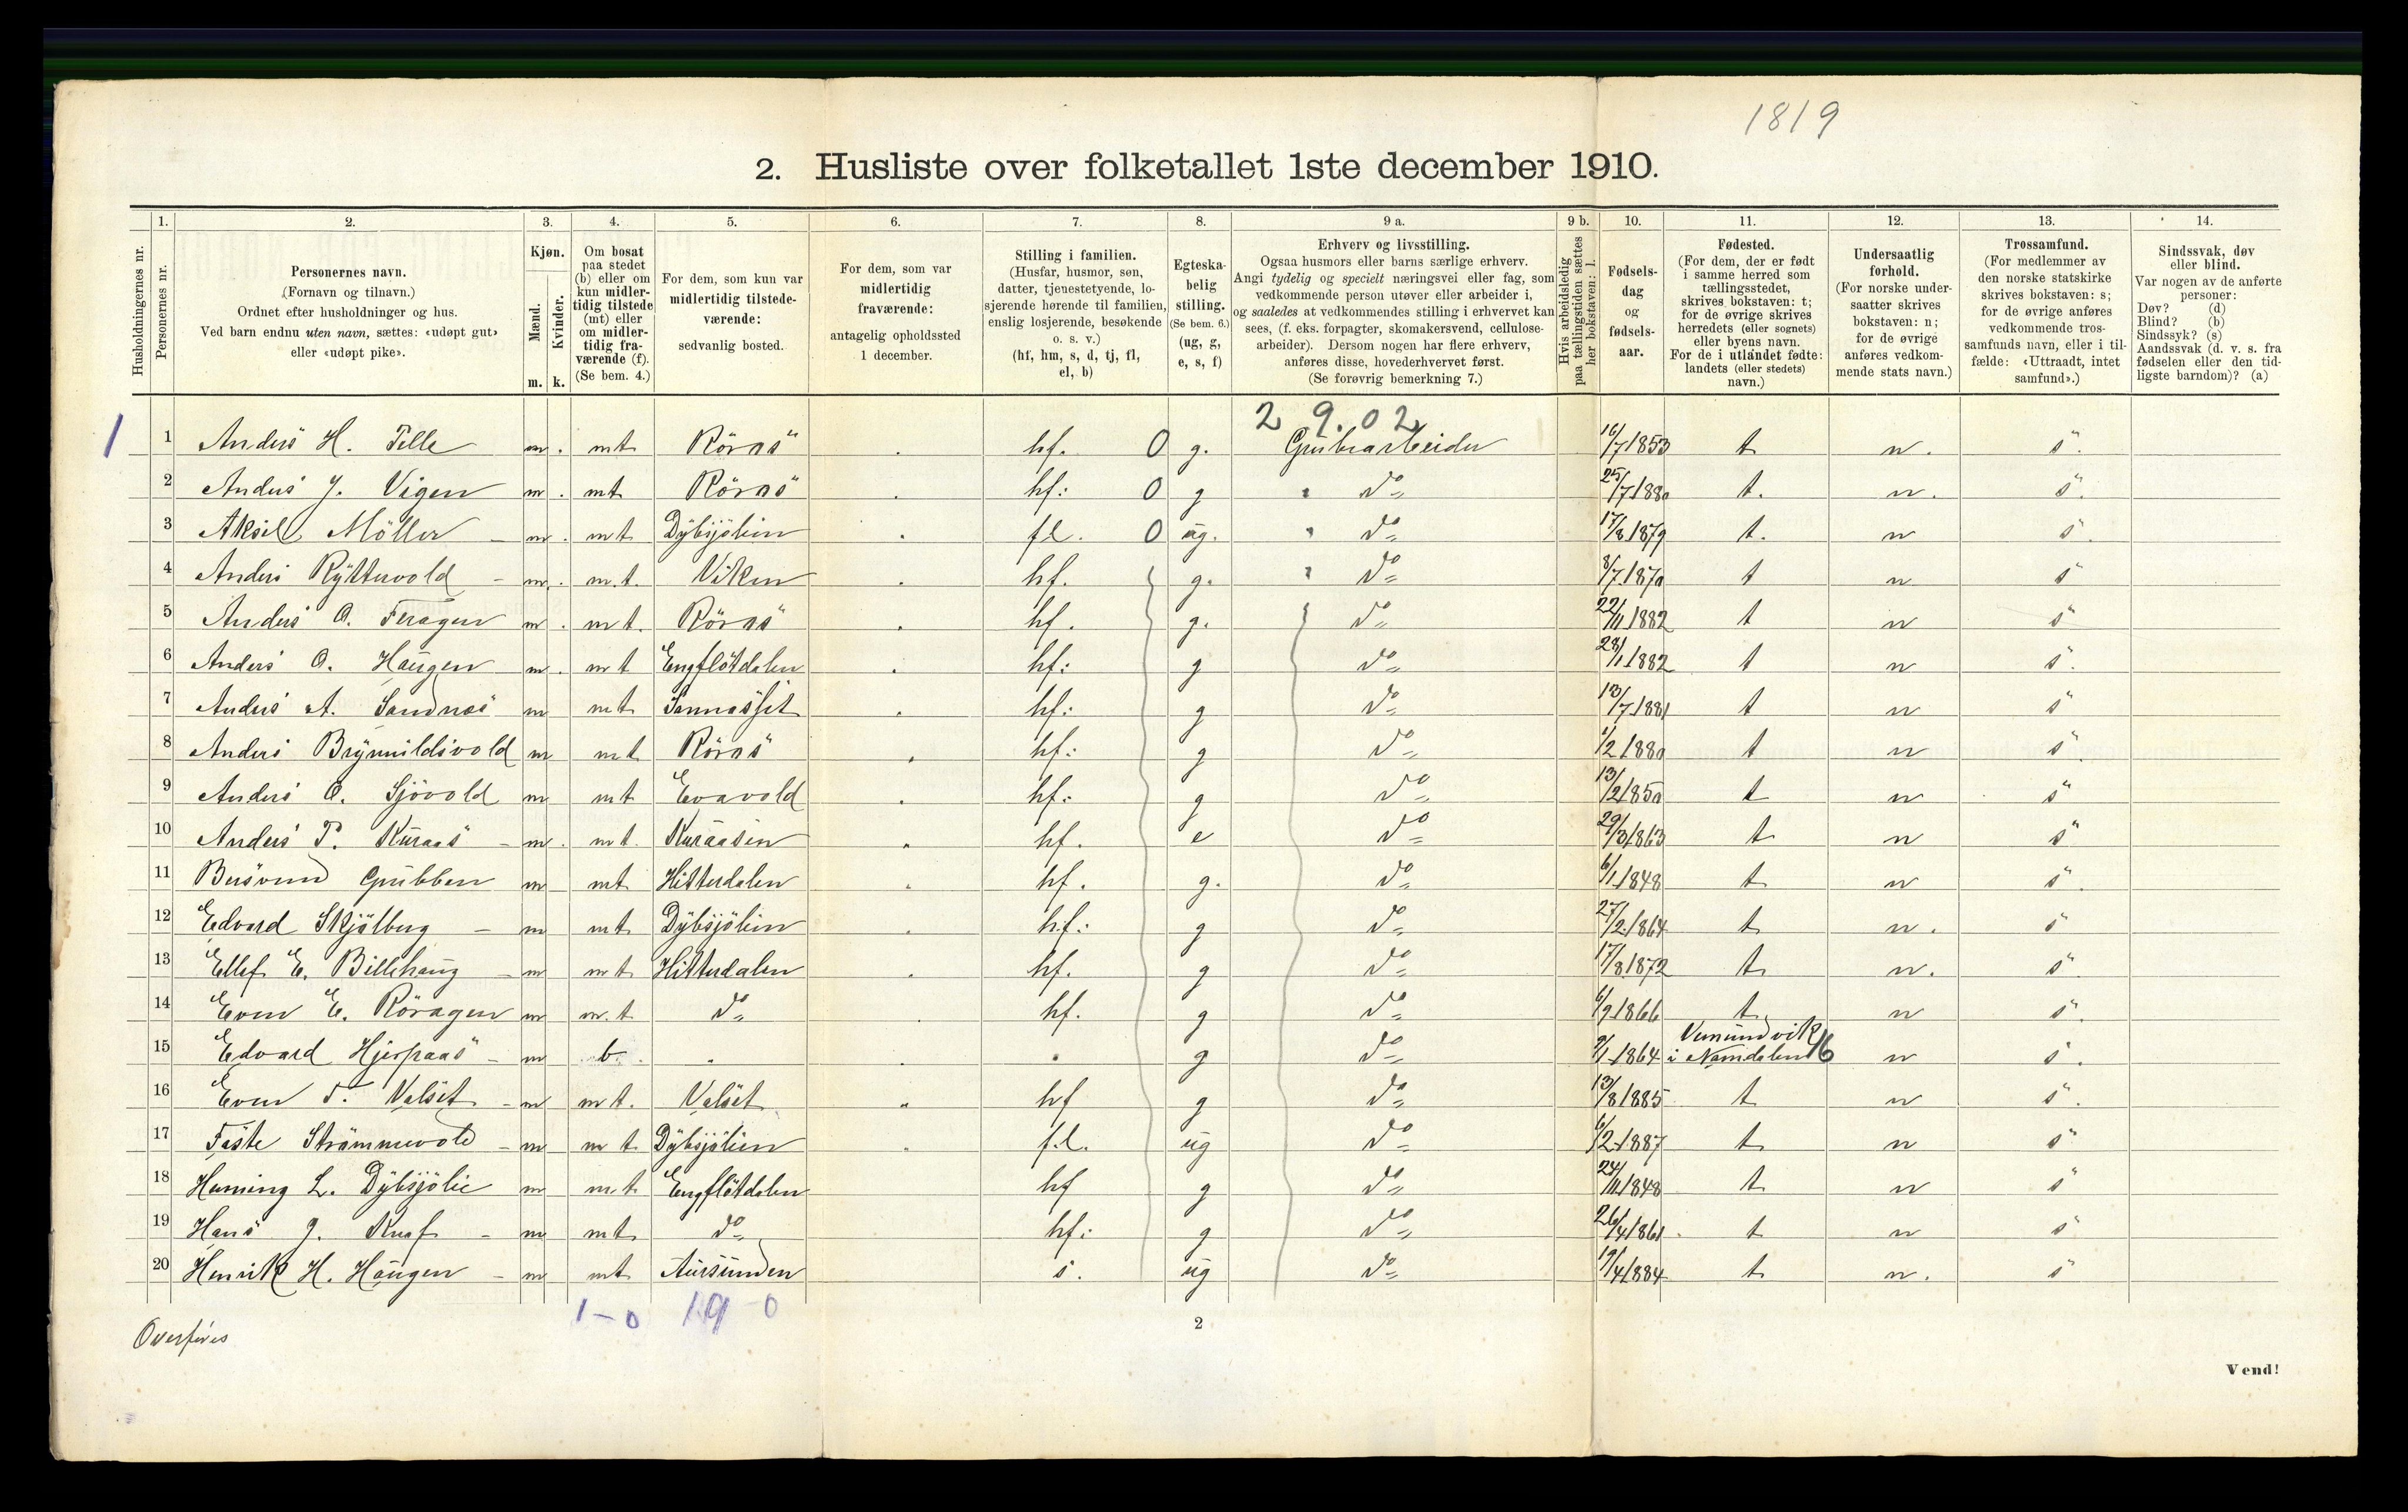 1819
2. Husliste over folketallet 1ste december 1910.
1. 2. 3. 4. 5. 6. 7. 8. 9 a. 9 b. 10. 11. 12. 13. 14.
Husholdningernes nr.
Personernes nr.
Personernes navn.
(Fornavn og tilnavn.)
Ordnet efter husholdninger og hus.
Ved barn endnu uten navn, sættes: «udøpt gut»
eller «udøpt pike».
Kjøn.
Mænd.
Kvinder.
m. k.
Om bosat
paa stedet
(b) eller om
kun midler-
tidig tilstede
(mt) eller
om midler-
tidig fra-
værende (f).
(Se bem. 4.)
For dem, som kun var
midlertidig tilstede-
værende:
sedvanlig bosted.
For dem, som var
midlertidig
fraværende:
antagelig opholdssted
1 december.
Stilling i familien.
(Husfar, husmor, søn,
datter, tjenestetyende, lo-
sjerende hørende til familien,
enslig losjerende, besøkende
o. s. v.)
(hf, hm, s, d, tj, fl,
el, b)
Egteska-
belig
stilling.
(Se bem. 6.)
(ug, g,
e, s, f)
Erhverv og livsstilling.
Ogsaa husmors eller barns særlige erhverv.
Angi tydelig og specielt næringsvei eller fag, som
vedkommende person utøver eller arbeider i,
og saaledes at vedkommendes stilling i erhvervet kan
sees, (f. eks. forpagter, skomakersvend, cellulose-
arbeider). Dersom nogen har flere erhverv,
anføres disse, hovederhvervet først.
(Se forøvrig bemerkning 7.)
Hvis arbeidsledig
paa tællingstiden sættes
her bokstaven: l.
Fødsels-
dag
og
fødsels-
aar.
Fødested.
(For dem, der er født
i samme herred som
tællingsstedet,
skrives bokstaven: t;
for de øvrige skrives
herredets (eller sognets)
eller byens navn.
For de i utlandet fødte:
landets (eller stedets)
navn.)
Undersaatlig
forhold.
(For norske under-
saatter skrives
bokstaven: n;
for de øvrige
anføres vedkom-
mende stats navn.)
Trossamfund.
(For medlemmer av
den norske statskirke
skrives bokstaven: s;
for de øvrige anføres
vedkommende tros-
samfunds navn, eller i til-
fælde: «Uttraadt, intet
samfund».)
Sindssvak, døv
eller blind.
Var nogen av de anførte
personer:
Døv? (d)
Blind? (b)
Sindssyk? (s)
Aandssvak (d. v. s. fra
fødselen eller den tid-
ligste barndom)? (a)
2 9.02
1 1 Anders H. Telle m. mt Röros hf. 0 g. Grubearbeider 16/7 1853 t n. s.
2 Anders J. Vigen m. mt Röros hf: 0 g do 25/7 1880 t. n. s.
3 Aksel Möller m. mt Dybsjölien fl. 0 ug. do 17/8 1879 t. n s.
4 Anders Ryttervold m. m.t. Viken hf. g. do 8/7 1870 t n s
5 Anders O. Feragen m. mt. Röros hf. g. do 22/11 1882 t n s
6 Anders O. Haugen m. mt Engflötdalen hf: g do 1882 t n s.
7 Anders A. Sandnes m mt hf: g do 13/7 1881 t n s
8 Anders Brynnildsvold m mt Röros hf: g do 1/2 1880 t n s
9 Anders O. Sjövold m mt Evavold hf: g do 13/2 1850 t n s
10 Anders P. Kuraas m. mt. Kuraasen hf. e do 29/3 1863 t n s
11 Bersvend Grubben m mt Hitterdalen hf. g. do 6/1 1848 t n s.
12 Edvard Skjölberg m mt Dybsjölien hf: g do 27/2 1864 t n. s
13 Ellef E. Billehaug m mt Hitterdalen hf. g do 17/8 1872 t n. s
14 Even E. Röragen m m.t do hf. g do 6/9 1866 t n s.
15 Edvard Hjerpaas m b g do 9/1 1864 Vemundvik i Namdalen 16 n s.
16 Even T. Valset m mt. Valset hf g do 13/8 1885 t n s.
17 Faste Strömmevold m mt Dybsjölien f.l. ug do 6/2 1887 t n s
18 Heming L. Dybsjölie m mt Engflötdalen hf g do 24/11 1848 t n s
19 Hans J. Kurf m mt do hf: g do 26/4 1861 t n s
20 Henrik H. Haugen m mt Aursunden s. ug do 19/4 1884 t n. s
1-0 19 0
2
Overføres
Vend!